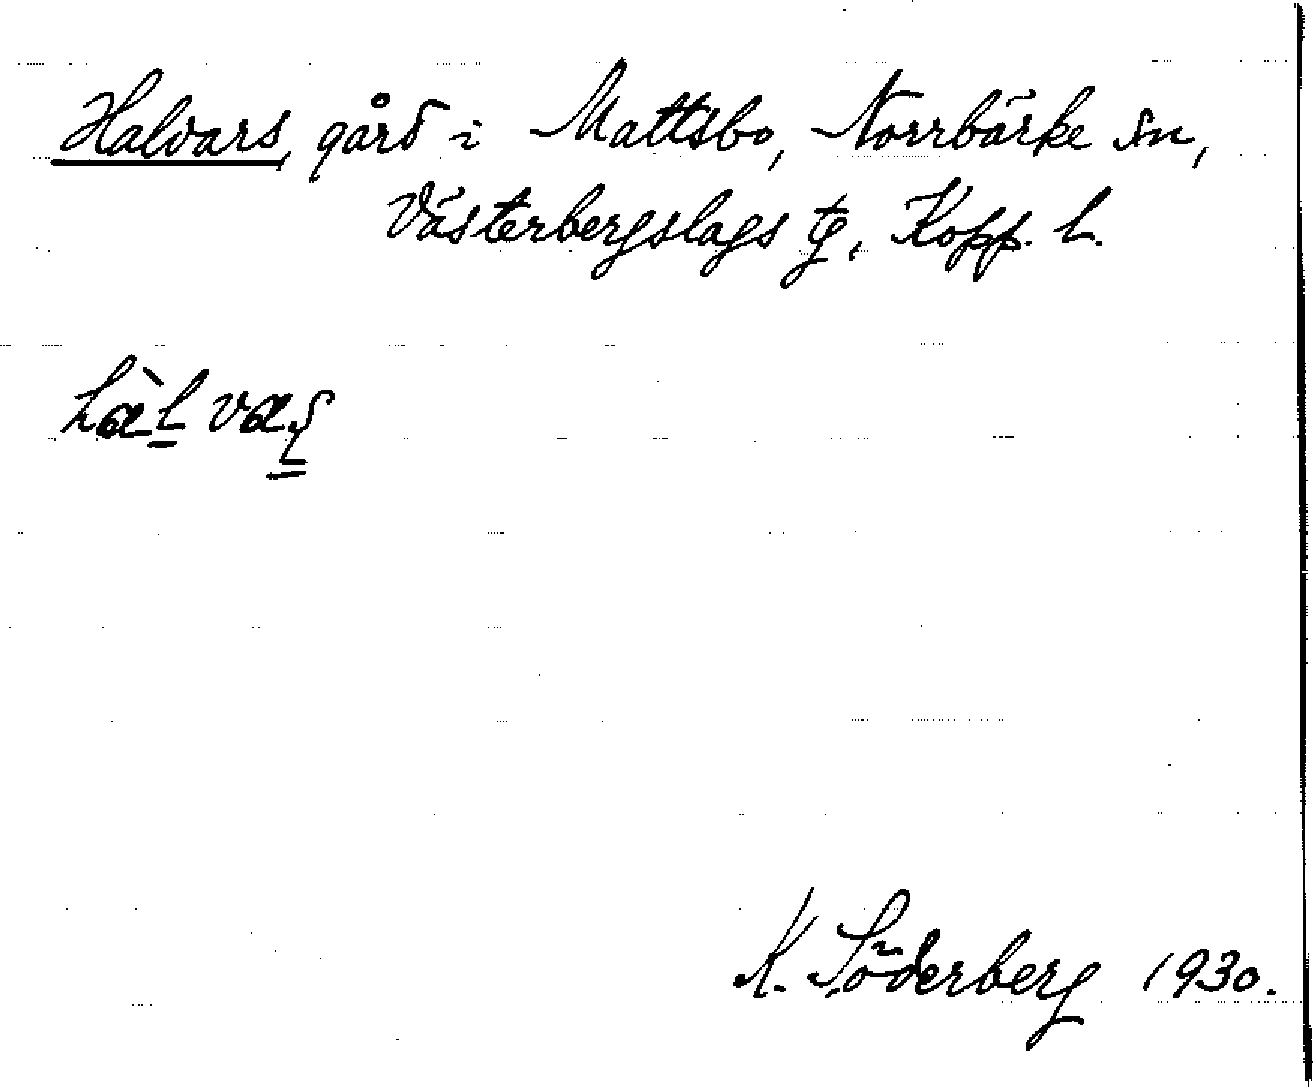 Halvars, gård i Mattsbo, Norrbärke sn,
Västerbergslags tg, Kopp. l.
hàlvaş
K. Söderberg 1930.